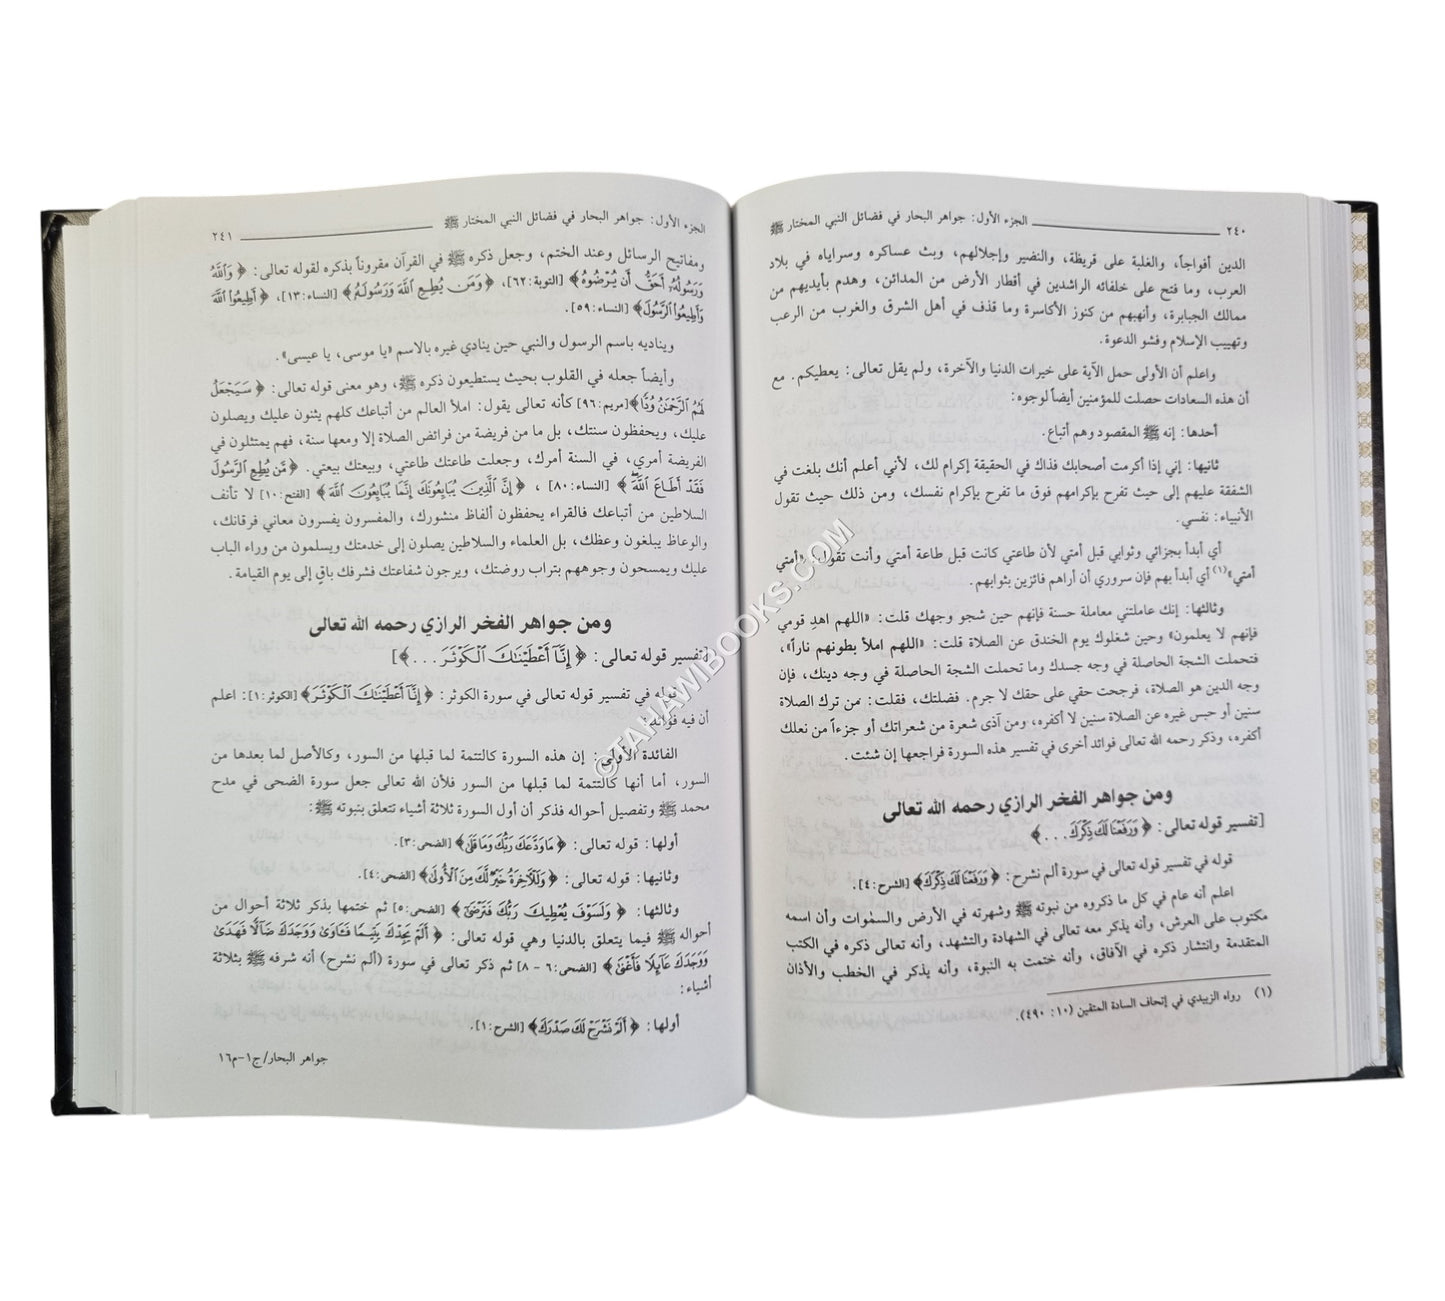 ٢٤٠ الجزء الأول: جواهر البحار في فضائل النبي المختار ﷺ
الدين أفواجاً، والغلبة على قريظة، والنضير وإجلالهم، وبث عساكره وسراياه في بلاد
العرب، وما فتح على خلفائه الراشدين في أقطار الأرض من المدائن، وهدم بأيديهم من
ممالك الجبابرة، وأنهبهم من كنوز الأكاسرة وما قذف في أهل الشرق والغرب من الرعب
وتهييب الإسلام وفشو الدعوة.
واعلم أن الأولى حمل الآية على خيرات الدنيا والآخرة، ولم يقل تعالى: يعطيكم. مع
أن هذه السعادات حصلت للمؤمنين أيضاً لوجوه:
أحدها: إنه ﷺ المقصود وهم أتباع.
ثانيها: إني إذا أكرمت أصحابك فذاك في الحقيقة إكرام لك، لأني أعلم أنك بلغت في
الشفقة عليهم إلى حيث تفرح بإكرامهم فوق ما تفرح بإكرام نفسك، ومن ذلك حيث تقول
الأنبياء: نفسي.
أي أبدأ بجزائي وثوابي قبل أمتي لأن طاعتي كانت قبل طاعة أمتي وأنت تقول: «أمتي
أمتي»(١) أي أبدأ بهم فإن سروري أن أراهم فائزين بثوابهم.
وثالثها: إنك عاملتني معاملة حسنة فإنهم حين شجو وجهك قلت: «اللهم اهدِ قومي
فإنهم لا يعلمون» وحين شغلوك يوم الخندق عن الصلاة قلت: «اللهم املأ بطونهم ناراً»،
فتحملت الشجة الحاصلة في وجه جسدك وما تحملت الشجة الحاصلة في وجه دينك، فإن
وجه الدين هو الصلاة، فرجحت حقي على حقك لا جرم. فضلتك، فقلت: من ترك الصلاة
سنين أو حبس غيره عن الصلاة سنين لا أكفره، ومن آذى شعرة من شعراتك أو جزءاً من نعلك
أكفره، وذكر رحمه الله تعالى فوائد أخرى في تفسير هذه السورة فراجعها إن شئت.
ومن جواهر الفخر الرازي رحمه الله تعالى
[تفسير قوله تعالى: ﴿ وَرَفَعْنَا لَكَ ذِكْرَكَ... ﴾
قوله في تفسير قوله تعالى في سورة ألم نشرح: ﴿ وَرَفَعْنَا لَكَ ذِكْرَكَ﴾ [الشرح: ٤].
اعلم أنه عام في كل ما ذكروه من نبوته ﷺ وشهرته في الأرض والسمٰوات وأن اسمه
مكتوب على العرش، وأنه يذكر معه تعالى في الشهادة والتشهد، وأنه تعالى ذكره في الكتب
المتقدمة وانتشار ذكره في الآفاق، وأنه ختمت به النبوة، وأنه يذكر في الخطب والأذان
(١) رواه الزبيدي في إتحاف السادة المتقين (١٠: ٤٩٠).
الجزء الأول: جواهر البحار في فضائل النبي المختار ﷺ ٢٤١
ومفاتيح الرسائل وعند الختم، وجعل ذكره ﷺ في القرآن مقروناً بذكره لقوله تعالى: ﴿ وَاللَّهُ
وَرَسُولُهُ أَحَقُّ أَن يُرْضُوهُ﴾ [التوبة: ٦٢]، ﴿ وَمَن يُطِعِ اللَّهَ وَرَسُولَهُ ﴾ [النساء: ١٣]، ﴿ أَطِيعُوا اللَّهَ
وَأَطِيعُوا الرَّسُولَ﴾ [النساء: ٥٩].
ويناديه باسم الرسول والنبي حين ينادي غيره بالاسم «يا موسى، يا عيسى».
وأيضاً جعله في القلوب بحيث يستطيعون ذكره ﷺ، وهو معنى قوله تعالى: ﴿ سَيَجْعَلُ
لَهُمُ الرَّحْمَٰنُ وُدًّا﴾ [مريم: ٩٦] كأنه تعالى يقول: املأ العالم من أتباعك كلهم يثنون عليك ويصلون
عليك، ويحفظون سنتك، بل ما من فريضة من فرائض الصلاة إلا ومعها سنة، فهم يمتثلون في
الفريضة أمري، في السنة أمرك، وجعلت طاعتك طاعتي، وبيعتك بيعتي. ﴿ مَّن يُطِعِ الرَّسُولَ
فَقَدْ أَطَاعَ اللَّهَ ﴾ [النساء: ٨٠]، ﴿ إِنَّ الَّذِينَ يُبَايِعُونَكَ إِنَّمَا يُبَايِعُونَ اللَّهَ﴾ [الفتح: ١٠] لا تأنف
السلاطين من أتباعك فالقراء يحفظون ألفاظ منشورك، والمفسرون يفسرون معاني فرقانك،
والوعاظ يبلغون وعظك، بل العلماء والسلاطين يصلون إلى خدمتك ويسلمون من وراء الباب
عليك ويمسحون وجوههم بتراب روضتك، ويرجون شفاعتك فشرفك باقٍ إلى يوم القيامة.
ومن جواهر الفخر الرازي رحمه الله تعالى
[تفسير قوله تعالى: ﴿ إِنَّا أَعْطَيْنَاكَ الْكَوْثَرَ ... ﴾]
قوله في تفسير قوله تعالى في سورة الكوثر: ﴿ إِنَّا أَعْطَيْنَاكَ الْكَوْثَرَ﴾ [الكوثر: ١]: اعلم
أن فيه فوائد:
الفائدة الأولى: إن هذه السورة كالتتمة لما قبلها من السور، وكالأصل لما بعدها من
السور، أما أنها كالتتمة لما قبلها من السور فلأن الله تعالى جعل سورة الضحى في مدح
محمد ﷺ وتفصيل أحواله فذكر أن أول السورة ثلاثة أشياء تتعلق بنبوته ﷺ:
أولها: قوله تعالى: ﴿ مَا وَدَّعَكَ رَبُّكَ وَمَا قَلَىٰ﴾ [الضحى: ٣].
وثانيها: قوله تعالى: ﴿ وَلَلْآخِرَةُ خَيْرٌ لَّكَ مِنَ الْأُولَىٰ﴾ [الضحى: ٤].
وثالثها: ﴿ وَلَسَوْفَ يُعْطِيكَ رَبُّكَ فَتَرْضَىٰ﴾ [الضحى: ٥] ثم ختمها بذكر ثلاثة أحوال من
أحواله ﷺ فيما يتعلق بالدنيا وهي قوله تعالى: ﴿ أَلَمْ يَجِدْكَ يَتِيمًا فَآوَىٰ وَوَجَدَكَ ضَالًّا فَهَدَىٰ
وَوَجَدَكَ عَائِلًا فَأَغْنَىٰ ﴾ [الضحى: ٦ - ٨] ثم ذكر تعالى في سورة (ألم نشرح) أنه شرفه ﷺ بثلاثة
أشياء:
أولها: ﴿ أَلَمْ نَشْرَحْ لَكَ صَدْرَكَ﴾ [الشرح: ١].
جواهر البحار/ج١-م١٦
©TAHAWIBOOKS.COM